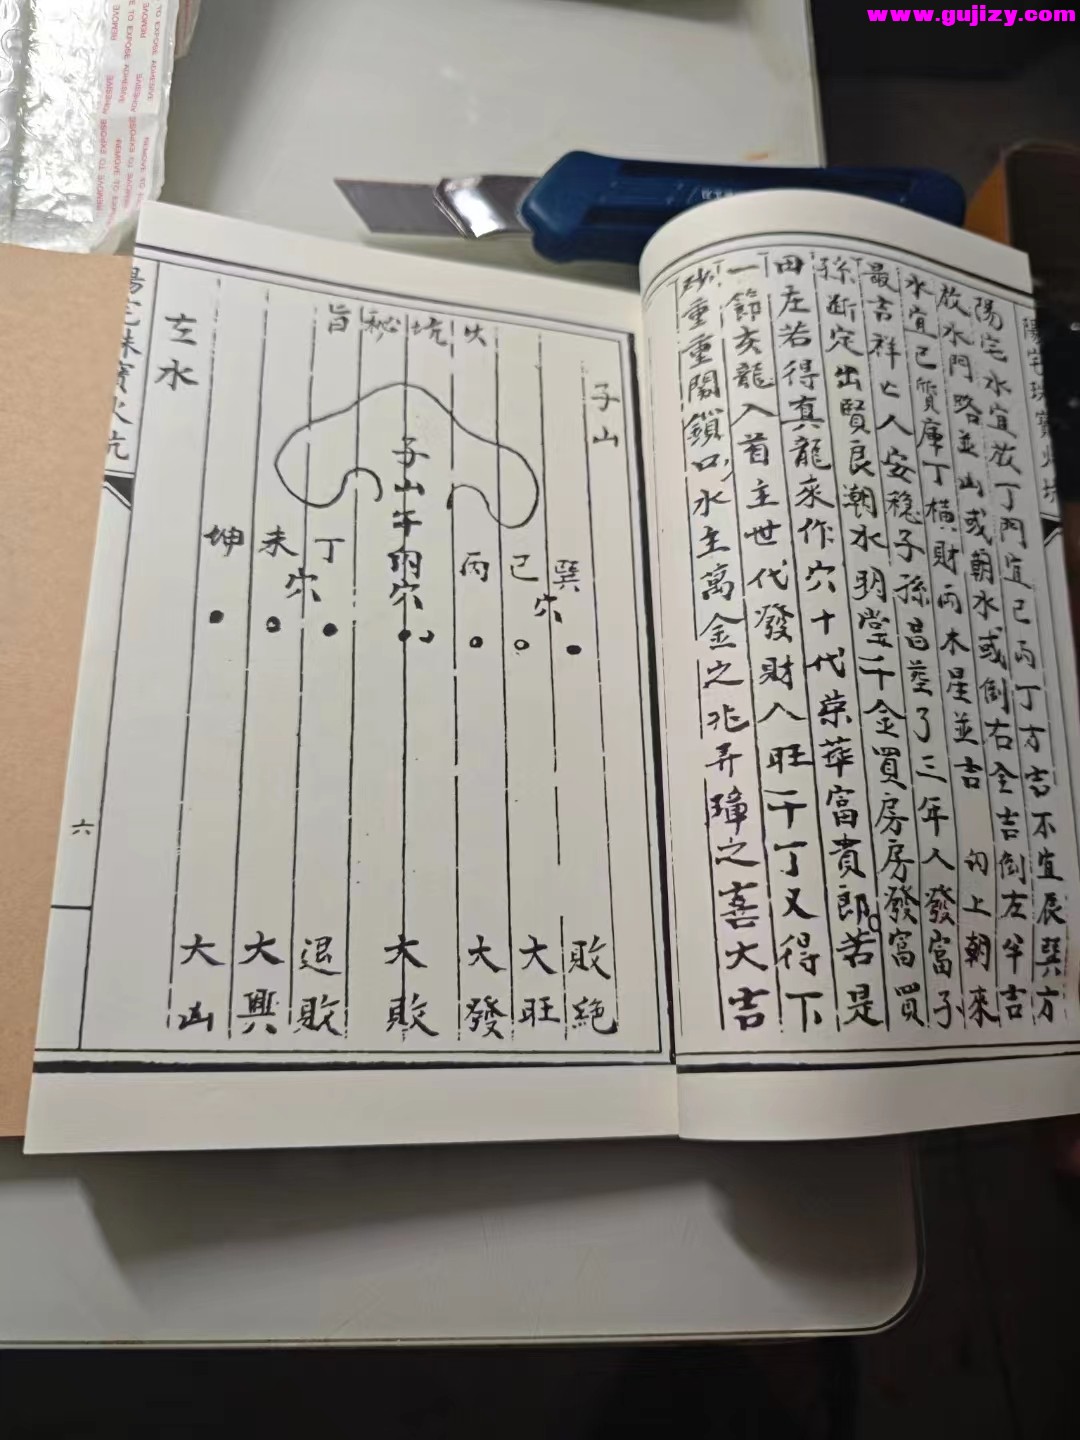 www.gujizy.com
陽宅水宜放丁門宜已丙丁方吉不宜辰巽方
放水門路並山或朝水或倒右全吉倒左半吉
水宜已質庫丁橫財丙木星並吉 內上朝來
最吉祥亡人安穩子孫昌莖了三年人發富子
孫斷定出賢良朝水明堂千金買房房發富買
田左若得真龍來作穴十代荣華富貴郎若是
一節亥龍入首主世代發財人旺千丁又得下
砂重重關鎖口水主萬金之兆弄璋之喜大吉
子山
火坑秘旨
子山午向穴
巽 敗絕
已穴 大旺
丙 大發
大敗
丁 退敗
未穴 大興
坤 大凶
立水
六
REMOVE TO EXPOSE ADHESIVE